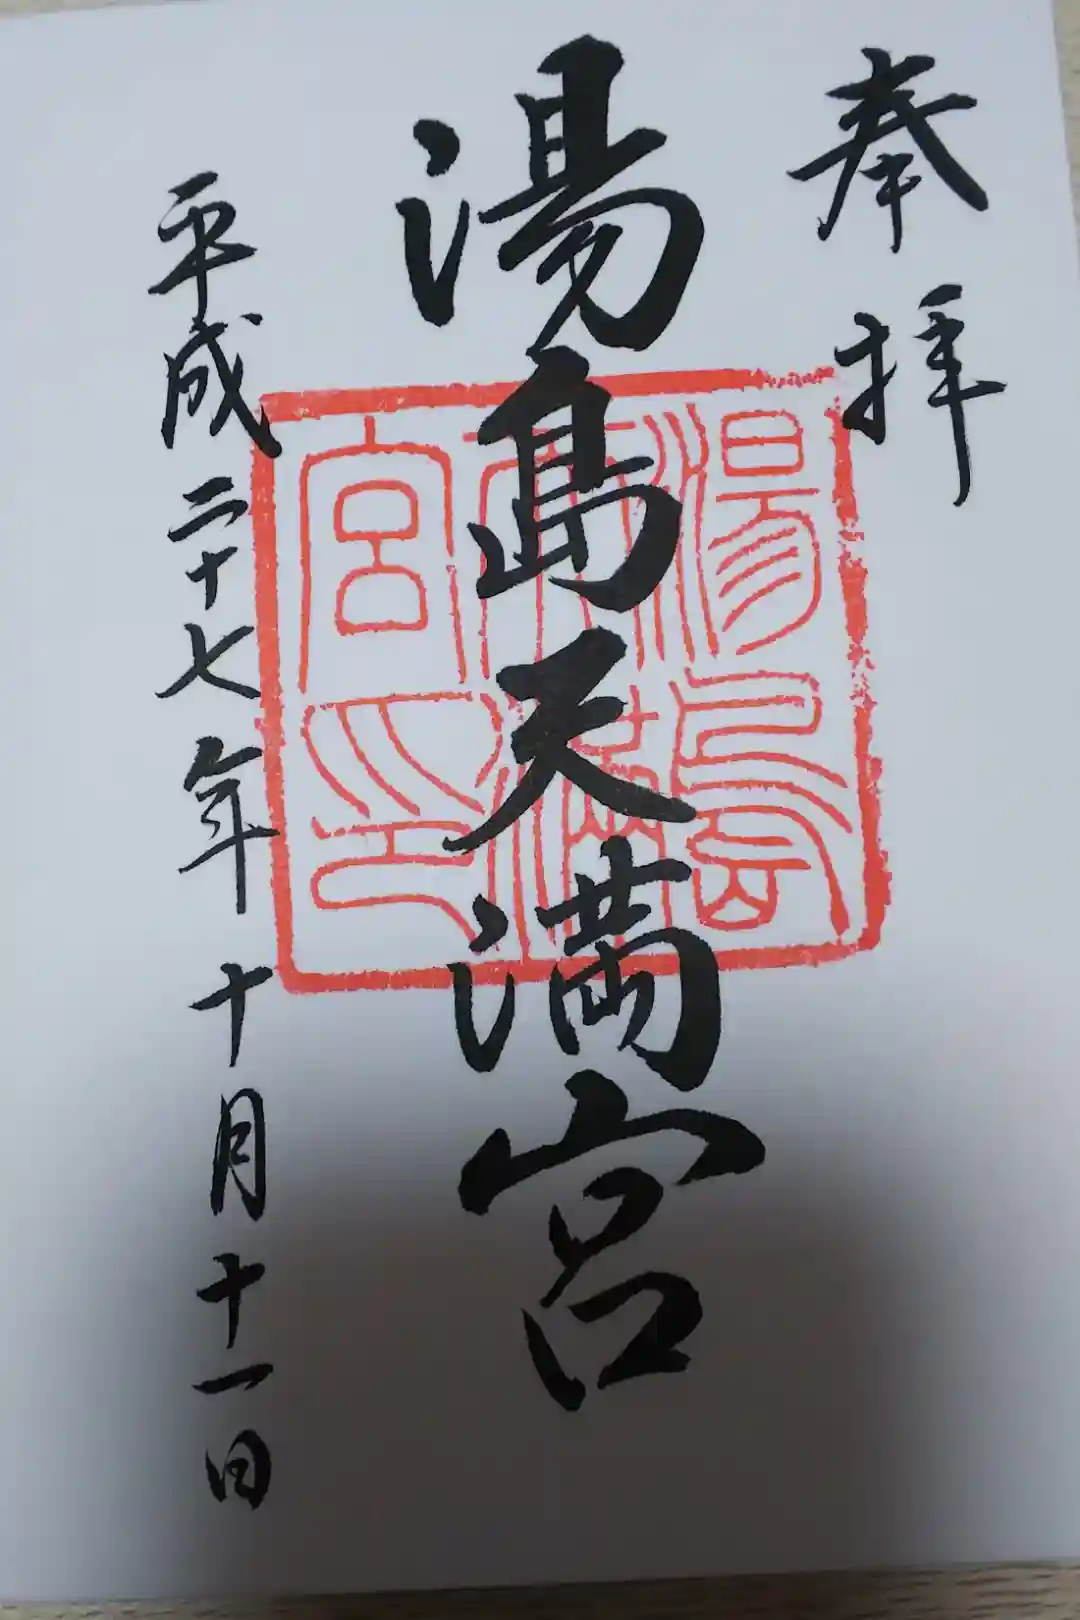 奉拝
湯島天満宮
湯島天満宮之印
平成二十七年十月十一日